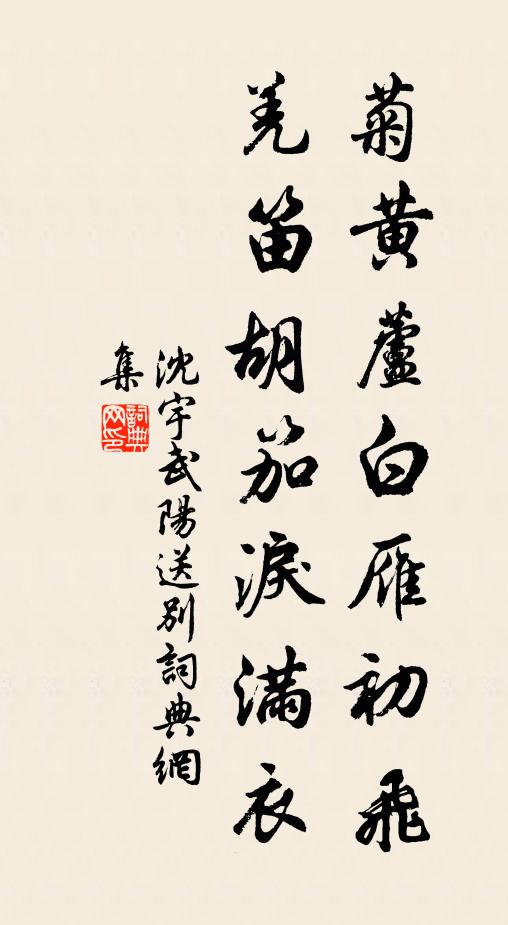 菊黃蘆白雁初飛
羌笛胡笳淚滿衣
沈宇武陽送別詞典網
集
詞典
网印